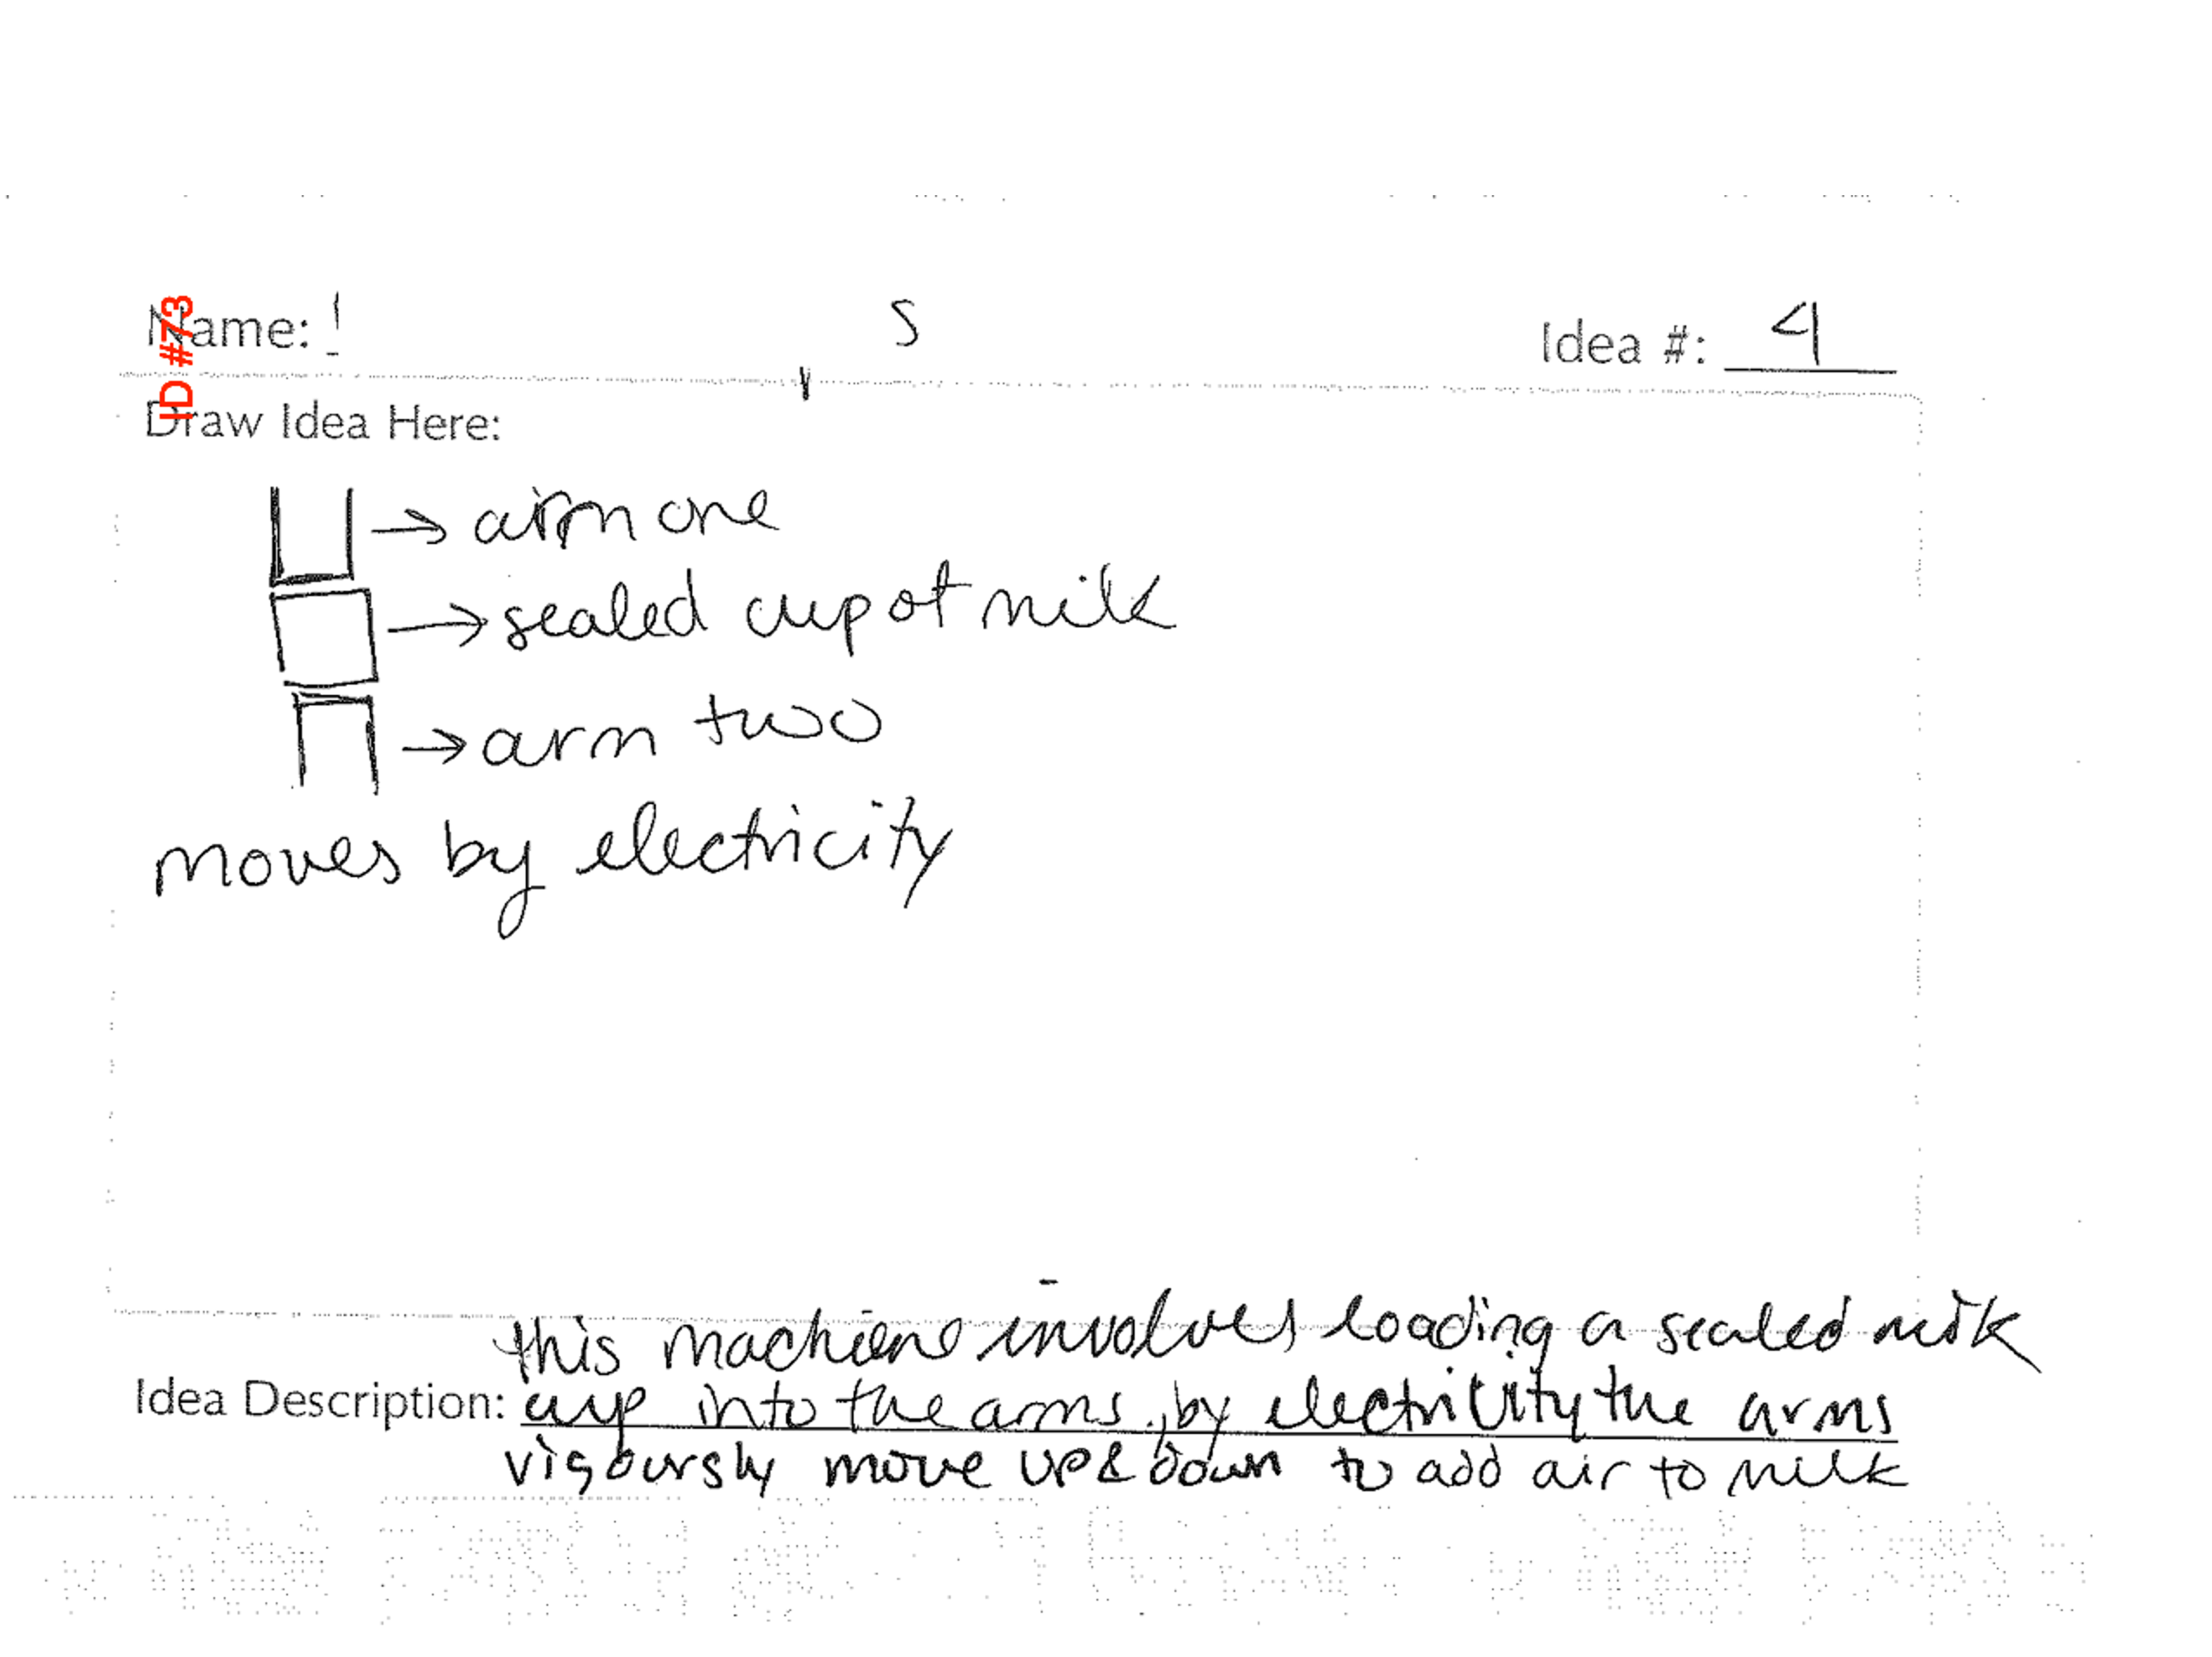 ID #73
Name: s Idea #: 4
Draw Idea Here:
→ arm one
→ sealed cup of milk
→ arm two
moves by electricity
this machine involves loading a sealed milk
Idea Description: cup into the arms., by electricity the arms
vigoursly move up & down to add air to milk